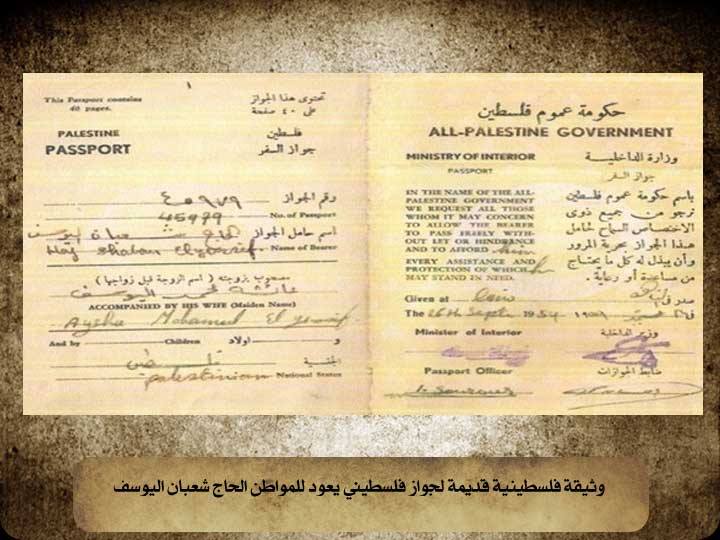 This Passport contains
40 pages.
تحتوى هذا الجواز
على ٤٠ صفحة
PALESTINE
PASSPORT
فلسطين
جواز السفر
رقم الجواز ٤٥٩٧٩
45979 No. of Passport
اسم حامل الجواز
Name of Bearer
مصحوب بزوجته ( اسم الزوجة قبل زواجها )
عائشة محمد اليوسف
ACCOMPANIED BY HIS WIFE (Maiden Name)
Aysha Mohamed El
And by Children اولاد و
الجنسية
palestinian National Status
حكومة عموم فلسطين
ALL-PALESTINE GOVERNMENT
MINISTRY OF INTERIOR
PASSPORT
وزارة الداخلية
جواز السفر
IN THE NAME OF THE ALL-
PALESTINE GOVERNMENT
WE REQUEST ALL THOSE
WHOM IT MAY CONCERN
TO ALLOW THE BEARER
TO PASS FREELY WITH-
OUT LET OR HINDRANCE
AND TO AFFORD him
EVERY ASSISTANCE AND
PROTECTION OF WHICH
MAY STAND IN NEED.
باسم حكومة عموم فلسطين
نرجو من جميع ذوى
الاختصاص السماح لحامل
هذا الجواز بحرية المرور
وأن يبذل له كل ما يحتاج
من مساعدة أو رعاية .
Given at Cairo
The 26th Sept 1954
Minister of Interior
وزير الداخلية
Passport Officer
ضابط الجوازات
وثيقة فلسطينية قديمة لجواز فلسطيني يعود للمواطن الحاج شعبان اليوسف